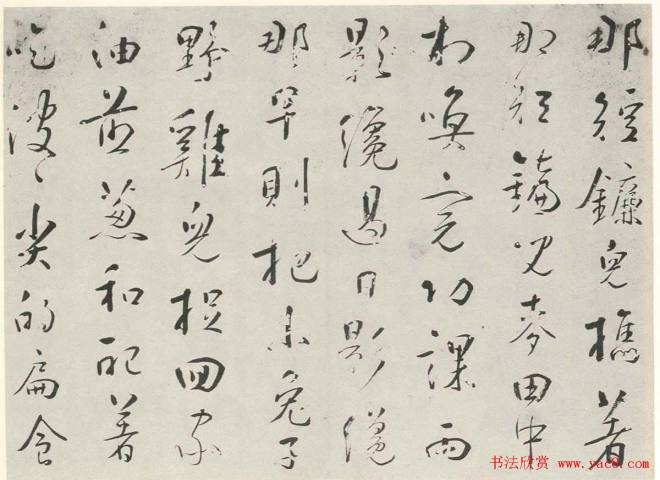 那短鐮兒樵著
那短兒麥田中
喚完功課
影纔過日影纔
那則把小兔子
野雞兒捉回家
油煎蔥和配著
吃尖的扁食
书法欣赏 www.yac8.com